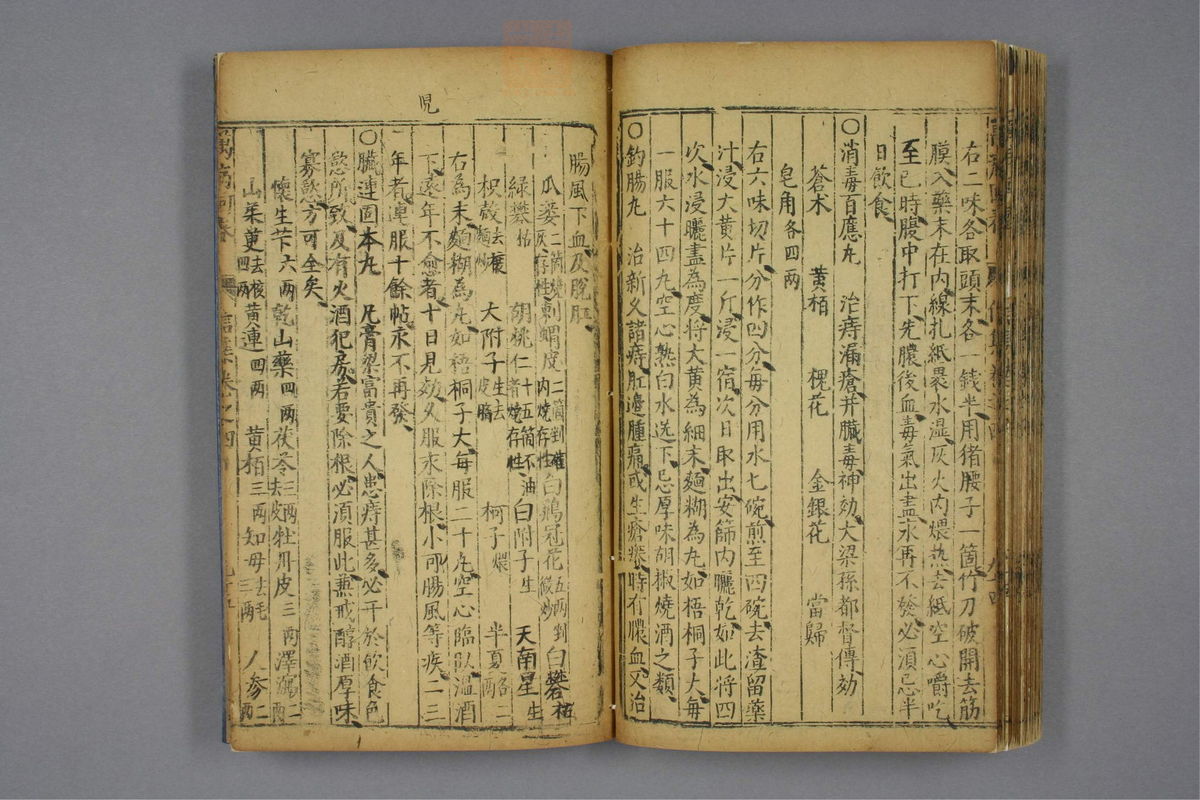 右二味各取頭末各一錢半用猪腰子一箇竹刀破開去筋
膜入藥末在內線扎紙裹水濕灰火內煨熱去紙空心嚼吃
至巳時腹中打下先膿後血毒氣出盡永再不發必須忌半
日飲食
○消毒百應丸 治痔漏瘡并臟毒神効大梁孫都督傳効
蒼朮 黄栢 槐花 金銀花 當歸
皂角各四兩
右六味切片分作四分每分用水七碗煎至四碗去渣留藥
汁浸大黄片一斤浸一宿次日取出安篩內曬乾如此將四
次水浸曬盡為度將大黄為細末麵糊為丸如梧桐子大每
一服六十四丸空心熱白水送下忌厚味胡椒燒酒之類
○釣腸丸 治新久諸痔肛邊腫痛或生瘡痒時有膿血又治
兒
腸風下血及脫肛
瓜蔞二箇燒灰存性 刺蝟皮二箇剉碎內燒存性 白鷄冠花五兩剉微炒 白礬枯
綠礬枯 胡桃仁十五箇不油者燒存性 白附子生 天南星生
枳殻去穰麵炒 大附子生去皮臍 柯子煨 半夏各二兩
右為末麵糊為丸如梧桐子大每服二十丸空心臨臥溫酒
下遠年不愈者十日見効久服永除根小可腸風等疾一二三
年者連服十餘帖永不再發
○臟連固本丸 凡膏粱富貴之人患痔甚多必干於飲食色
慾所致及有火酒犯房若要除根必須服此兼戒醇酒厚味
寡慾方可全矣
懷生苄六兩 乾山藥四兩 茯苓三兩去皮 牡丹皮三兩 澤瀉二
山茱萸去核四兩 黄連四兩 黄栢三兩 知母去毛三兩 人參二兩